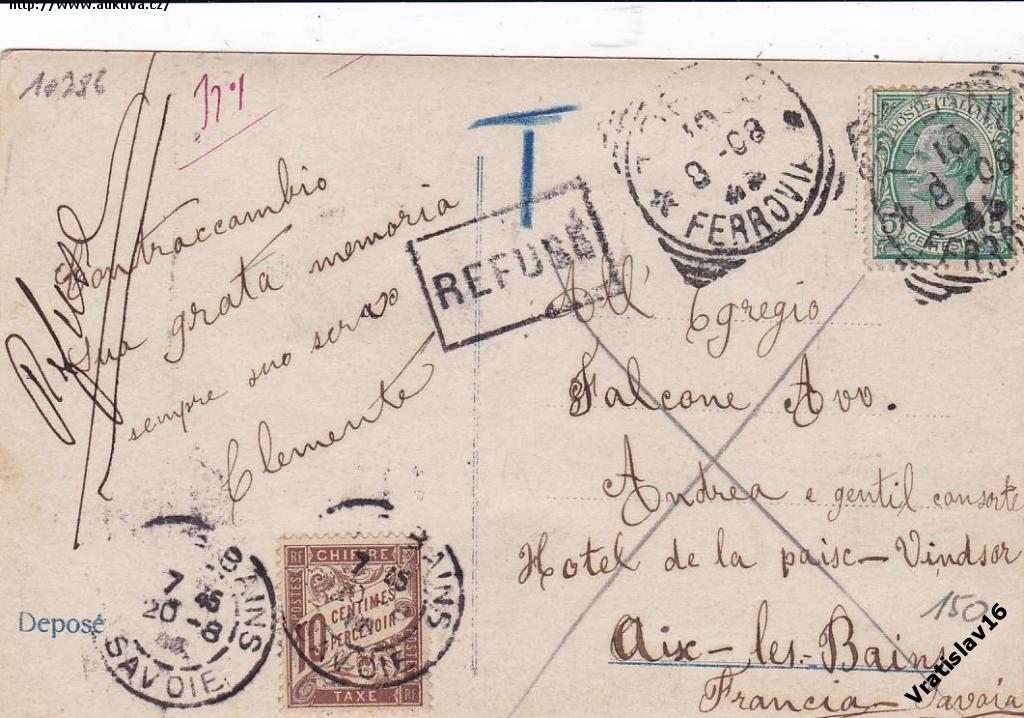 http://www.auktiva.cz/
10286
T
REFUSÉ
19
8-08
FERROVIA
POSTE ITALIANE
19
8-08
5
CENTESIMI
Contraccambio
sua grata memoria
sempre suo serax
Clemente
All' Egregio
Falcone Avv.
Andrea e gentil consorte
Hotel de la paise-Vindsor
Aix-les-Bains
Francia-Savoia
150
BAINS
7 45
20-8
SAVOIE
RF CHIFFRE
POSTES
10 CENTIMES
A PERCEVOIR
TAXE RF
BAINS
7 45
VOIE
Deposé
Vratislav16